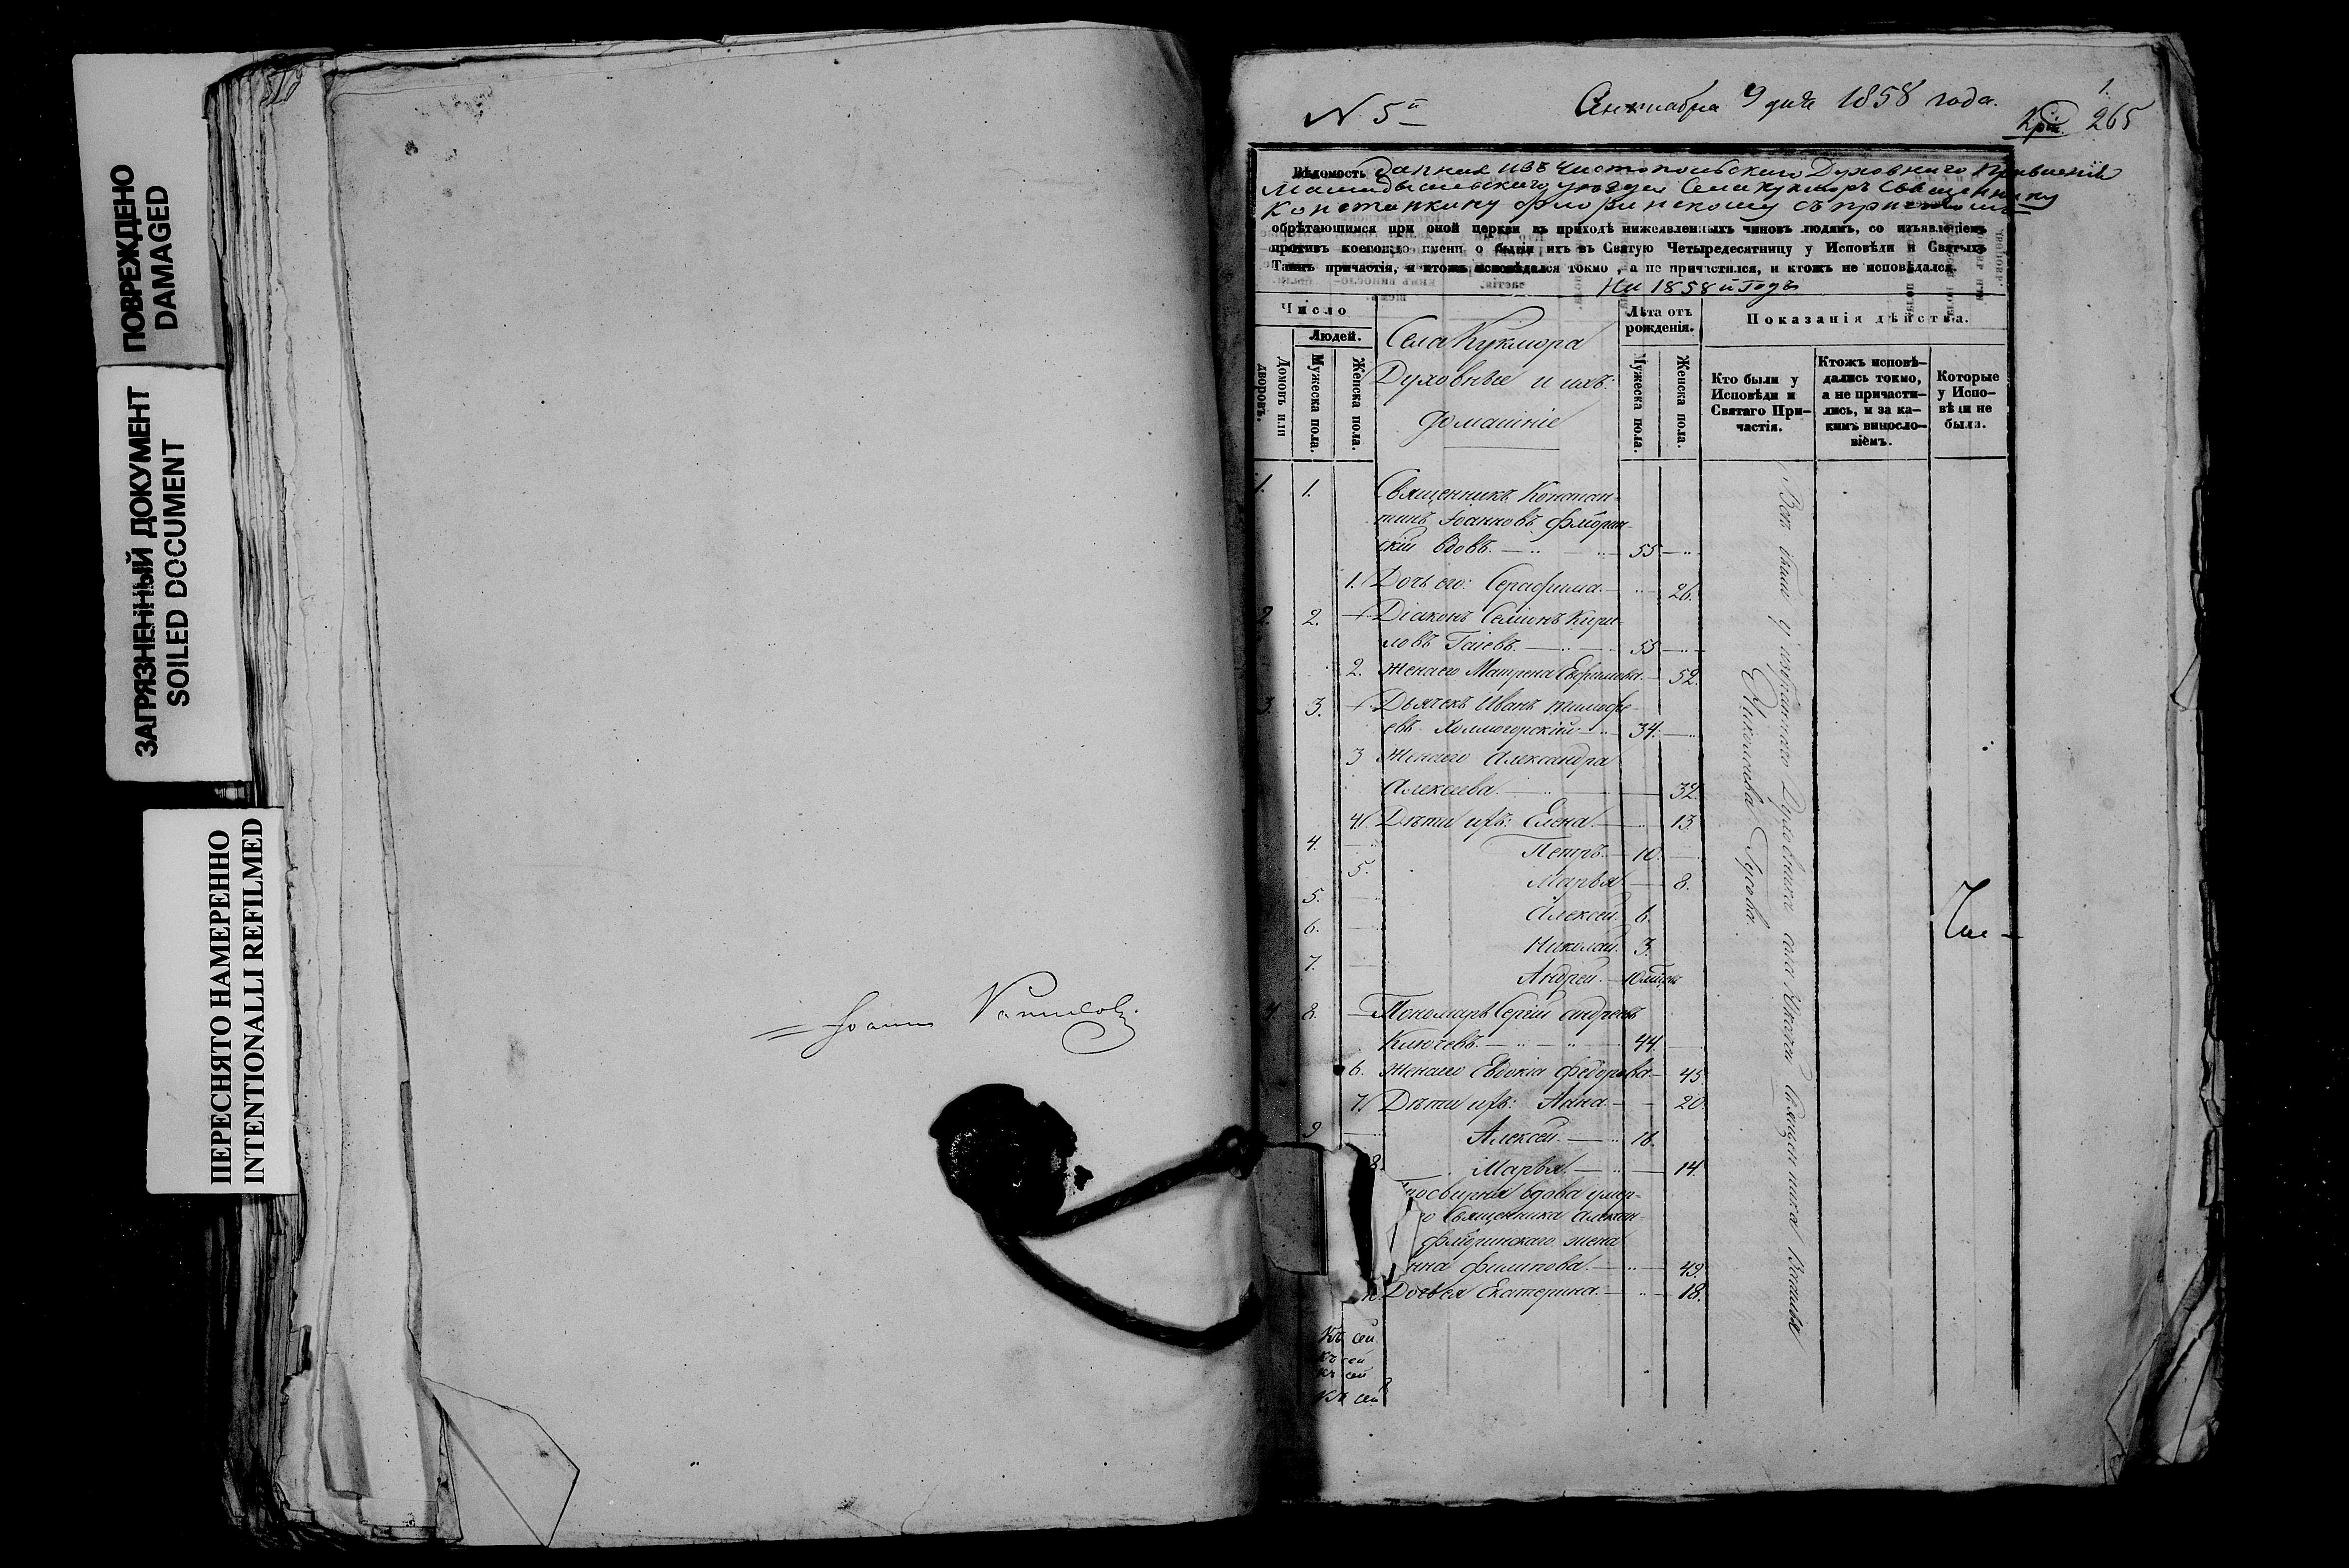 ПОВРЕЖДЕНО
DAMAGED
ЗАГРЯЗНЕННЫЙ ДОКУМЕНТ
SOILED DOCUMENT
ПЕРЕСНЯТО НАМЕРЕННО
INTENTIONALLI REFILMED
N 5й
Сентября 9 дня 1858 года.
1.
265
Вѣдомость данная изъ Чистопольского Духовного Правленія
Мамадышскаго уѣзда Села Кукморъ Священнику
Константину Флоринскому съ причтомъ
обрѣтающимся при оной церкви въ приходѣ нижеявленныхъ чиновъ людямъ, со изъявленіемъ
противъ коегождо имени о бытіи ихъ въ Святую Четыредесятницу у Исповѣди и Святыхъ
Таинъ причастія, и ктожъ исповѣдался токмо, а не причастился, и ктожъ не исповѣдался.
На 1858й Годъ
Число
Людей.
Домовъ или дворовъ.
Мужеска пола.
Женска пола.
Села Кукмора
Духовные и ихъ
домашніе
Лѣта отъ рожденія.
Мужеска пола.
Женска пола.
Показанія дѣйства.
Кто были у Исповѣди и Святаго Причастія.
Ктожъ исповѣ-
дались токмо,
а не причасти-
лись, и за ка-
кимъ винosло-
віемъ.
Которые
у Испо-
вѣди не
были.
1. 1. Священникъ Констан-
тинъ Іоанновъ Флорин-
скій вдовъ. 55
1. Дочь его: Серафима. 26.
2. 2. Діаконъ Семіонъ Кири-
ловъ Гаіевъ. 55
2. Жена его Матрена Ефримова. 52.
3. 3. Дьячекъ Иванъ Тимофе-
евъ Холмогорскій 34.
3 Жена его Александра
Алексеева. 32.
4. Дѣти ихъ: Елена. 13.
4. Петръ. 10.
5. Марья 8.
5. Алексей. 6.
6. Николай. 3.
7. Андрей.
4 8. Пономарь Сергій Андреевъ
Ключевъ. 44
6. Жена его Евдокіа Федорова. 45
7. Дѣти ихъ: Анна. 20.
9 Алексей. 16.
8 Марья. 14.
просвирня вдова умер-
го Священника Алексан-
Флоринскаго жена
нна Филипова. 49.
Дочь ея Екатерина. 18.
Всѣ были у избраннаго Духовника села Священника Василья
Николаева Гусева.
Къ сей
къ сей
къ сей
къ сей